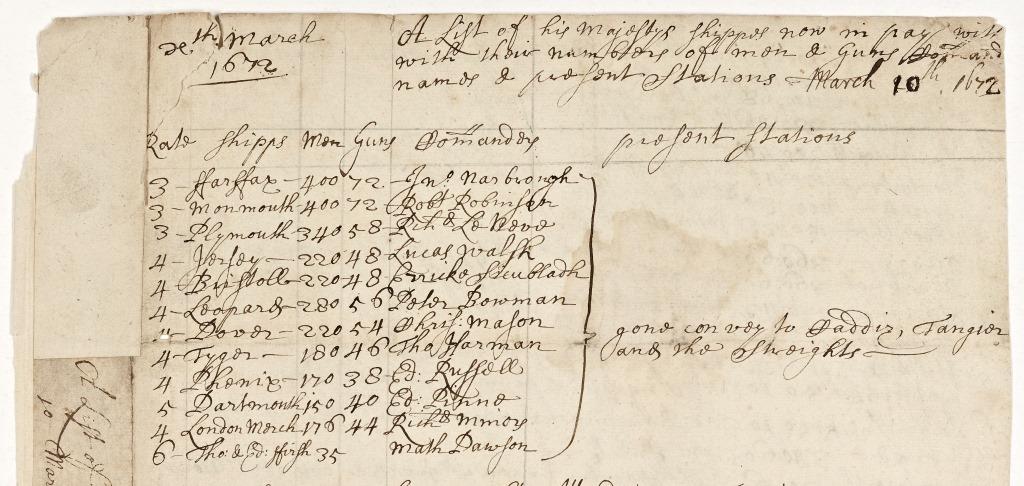 th March
1672
A List of his Majestys shippes now in pay with
with their numbers of men & Guns
names & present Stations March 10th 1672
Rate shipps Men Guns Comanders present Stations
3 - ffarffax - 400 72 - Jno Narbrough
3 - Monmouth 400 72 Robt Robinson
3 - Plymouth 340 58 - Richd Le Neve
4 - Jersey - 220 48 Lucas Walsh
4 - Bristoll - 220 48
4 - Leopard - 280 56 Peter Bowman
Dover - 220 54 Chris: Mason
gone convey to Caddiz, Tangier
4 - Tyger - 180 46 Tho Harman
and the Streights
4 Phenix - 170 38 Ed: Russell
5 Dartmouth 150 40 Ed: Pinne
4 London Merch 176 44 Richd Minors
6 - Tho: & Ed: ffish 35 Math Dawson
A List of
10 Mar